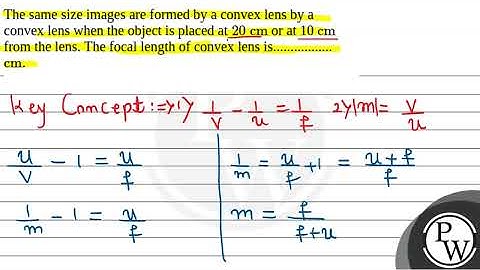 The same size images are formed by a convex lens by a
convex lens when the object is placed at 20 cm or at 10 cm
from the lens. The focal length of convex lens is.................
cm.
Key Concept :⇒ 1) 1/v - 1/u = 1/f 2) |m| = v/u
u/v - 1 = u/f
1/m - 1 = u/f
1/m = u/f + 1 = u+f/f
m = f/f+u
PW